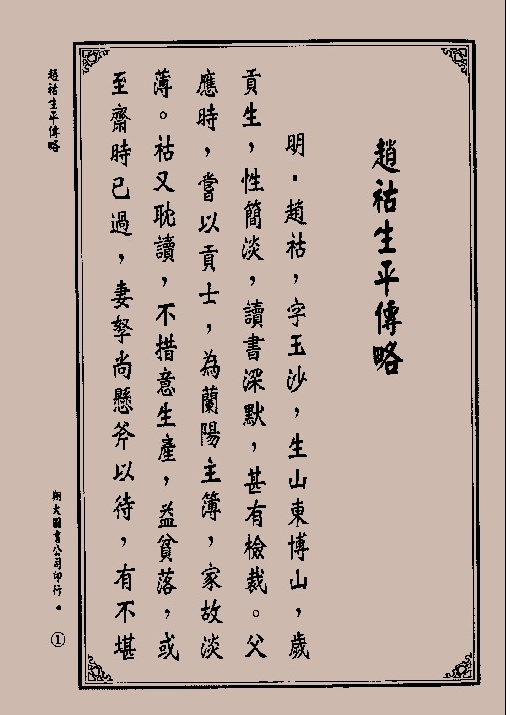 趙祜生平傳略
明．趙祜，字玉沙，生山東博山，歲
貢生，性簡淡，讀書深默，甚有檢裁。父
應時，嘗以貢士，為蘭陽主簿，家故淡
薄。祜又耽讀，不措意生產，益貧落，或
至齋時已過，妻孥尚懸釜以待，有不堪
趙祜生平傳略
翔大圖書公司印行。
①